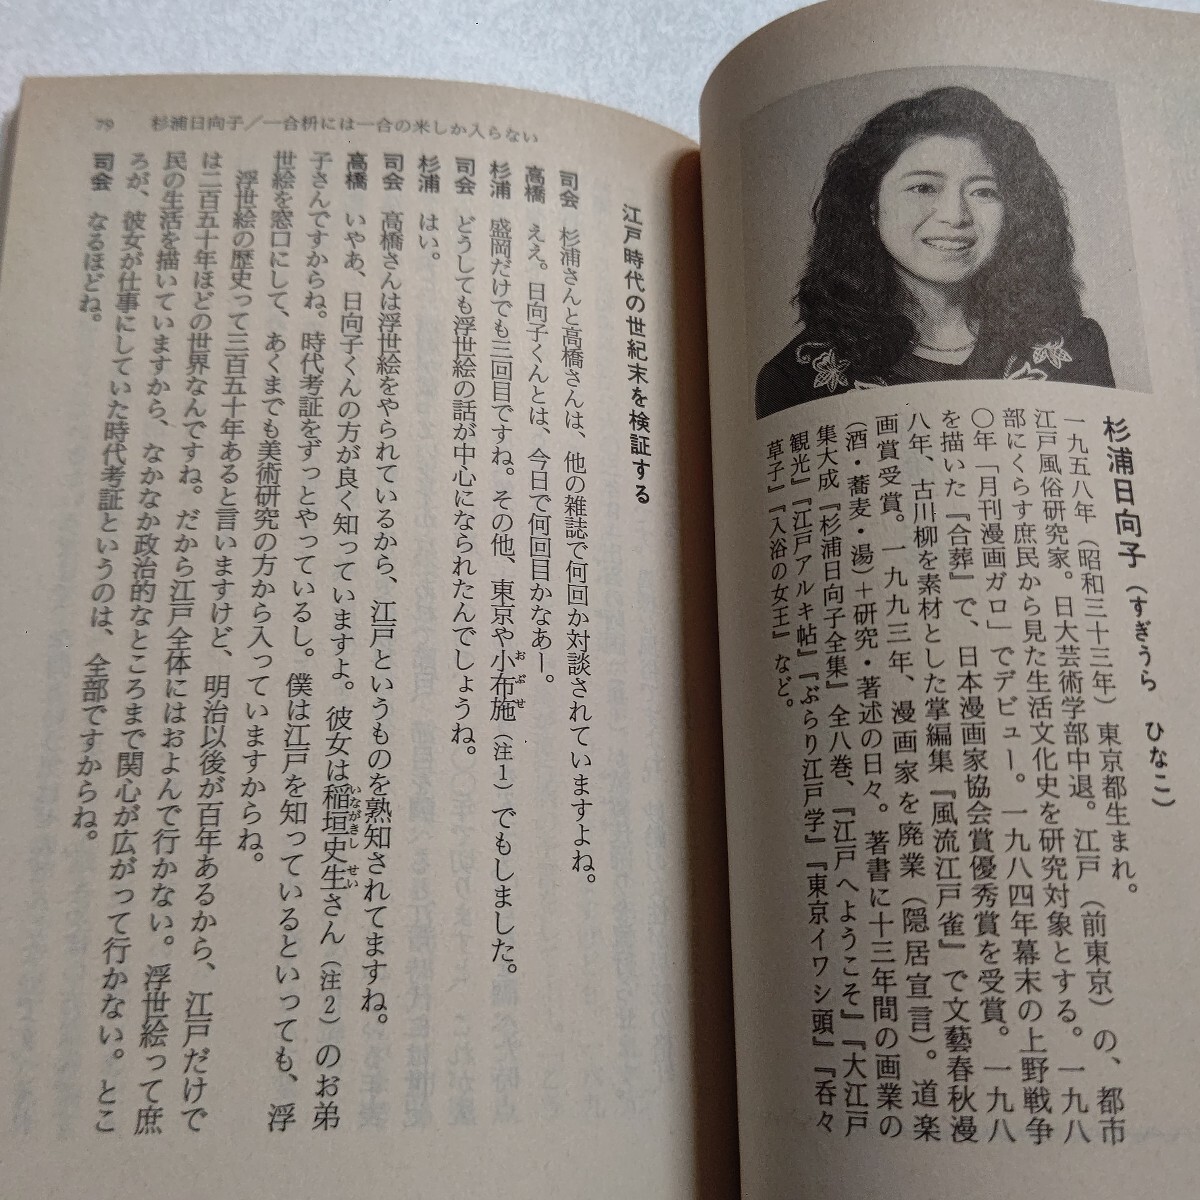 杉浦日向子(すぎうら ひなこ)
一九五八年(昭和三十三年)東京都生まれ。
江戸風俗研究家。日大芸術学部中退。江戸(前東京)の、都市
部にくらす庶民から見た生活文化史を研究対象とする。一九八
〇年「月刊漫画ガロ」でデビュー。一九八四年幕末の上野戦争
を描いた『合葬』で、日本漫画家協会賞優秀賞を受賞。一九八
八年、古川柳を素材とした掌編集『風流江戸雀』で文藝春秋漫
画賞受賞。一九九三年、漫画家を廃業(隠居宣言)。道楽
(酒・蕎麦・湯)+研究・著述の日々。著書に十三年間の画業の
集大成『杉浦日向子全集』全八巻、『江戸へようこそ』『大江戸
観光』『江戸アルキ帖』『ぶらり江戸学』『東京イワシ頭』『呑々
草子』『入浴の女王』など。
79 杉浦日向子/一合枡には一合の米しか入らない
江戸時代の世紀末を検証する
司会 杉浦さんと高橋さんは、他の雑誌で何回か対談されていますよね。
高橋 ええ。日向子くんとは、今日で何回目かなあー。
杉浦 盛岡だけでも三回目ですね。その他、東京や小布施(注1)でもしました。
おぶせ
司会 どうしても浮世絵の話が中心になられたんでしょうね。
杉浦 はい。
司会 高橋さんは浮世絵をやられているから、江戸というものを熟知されてますね。
高橋 いやあ、日向子くんの方が良く知っていますよ。彼女は稲垣史生さん(注2)のお弟
いながきし せい
子さんですからね。時代考証をずっとやっているし。僕は江戸を知っているといっても、浮
世絵を窓口にして、あくまでも美術研究の方から入っていますからね。
浮世絵の歴史って三百五十年あると言いますけど、明治以後が百年あるから、江戸だけで
は二百五十年ほどの世界なんですね。だから江戸全体にはおよんで行かない。浮世絵って庶
民の生活を描いていますから、なかなか政治的なところまで関心が広がって行かない。とこ
ろが、彼女が仕事にしていた時代考証というのは、全部ですからね。
司会 なるほどね。